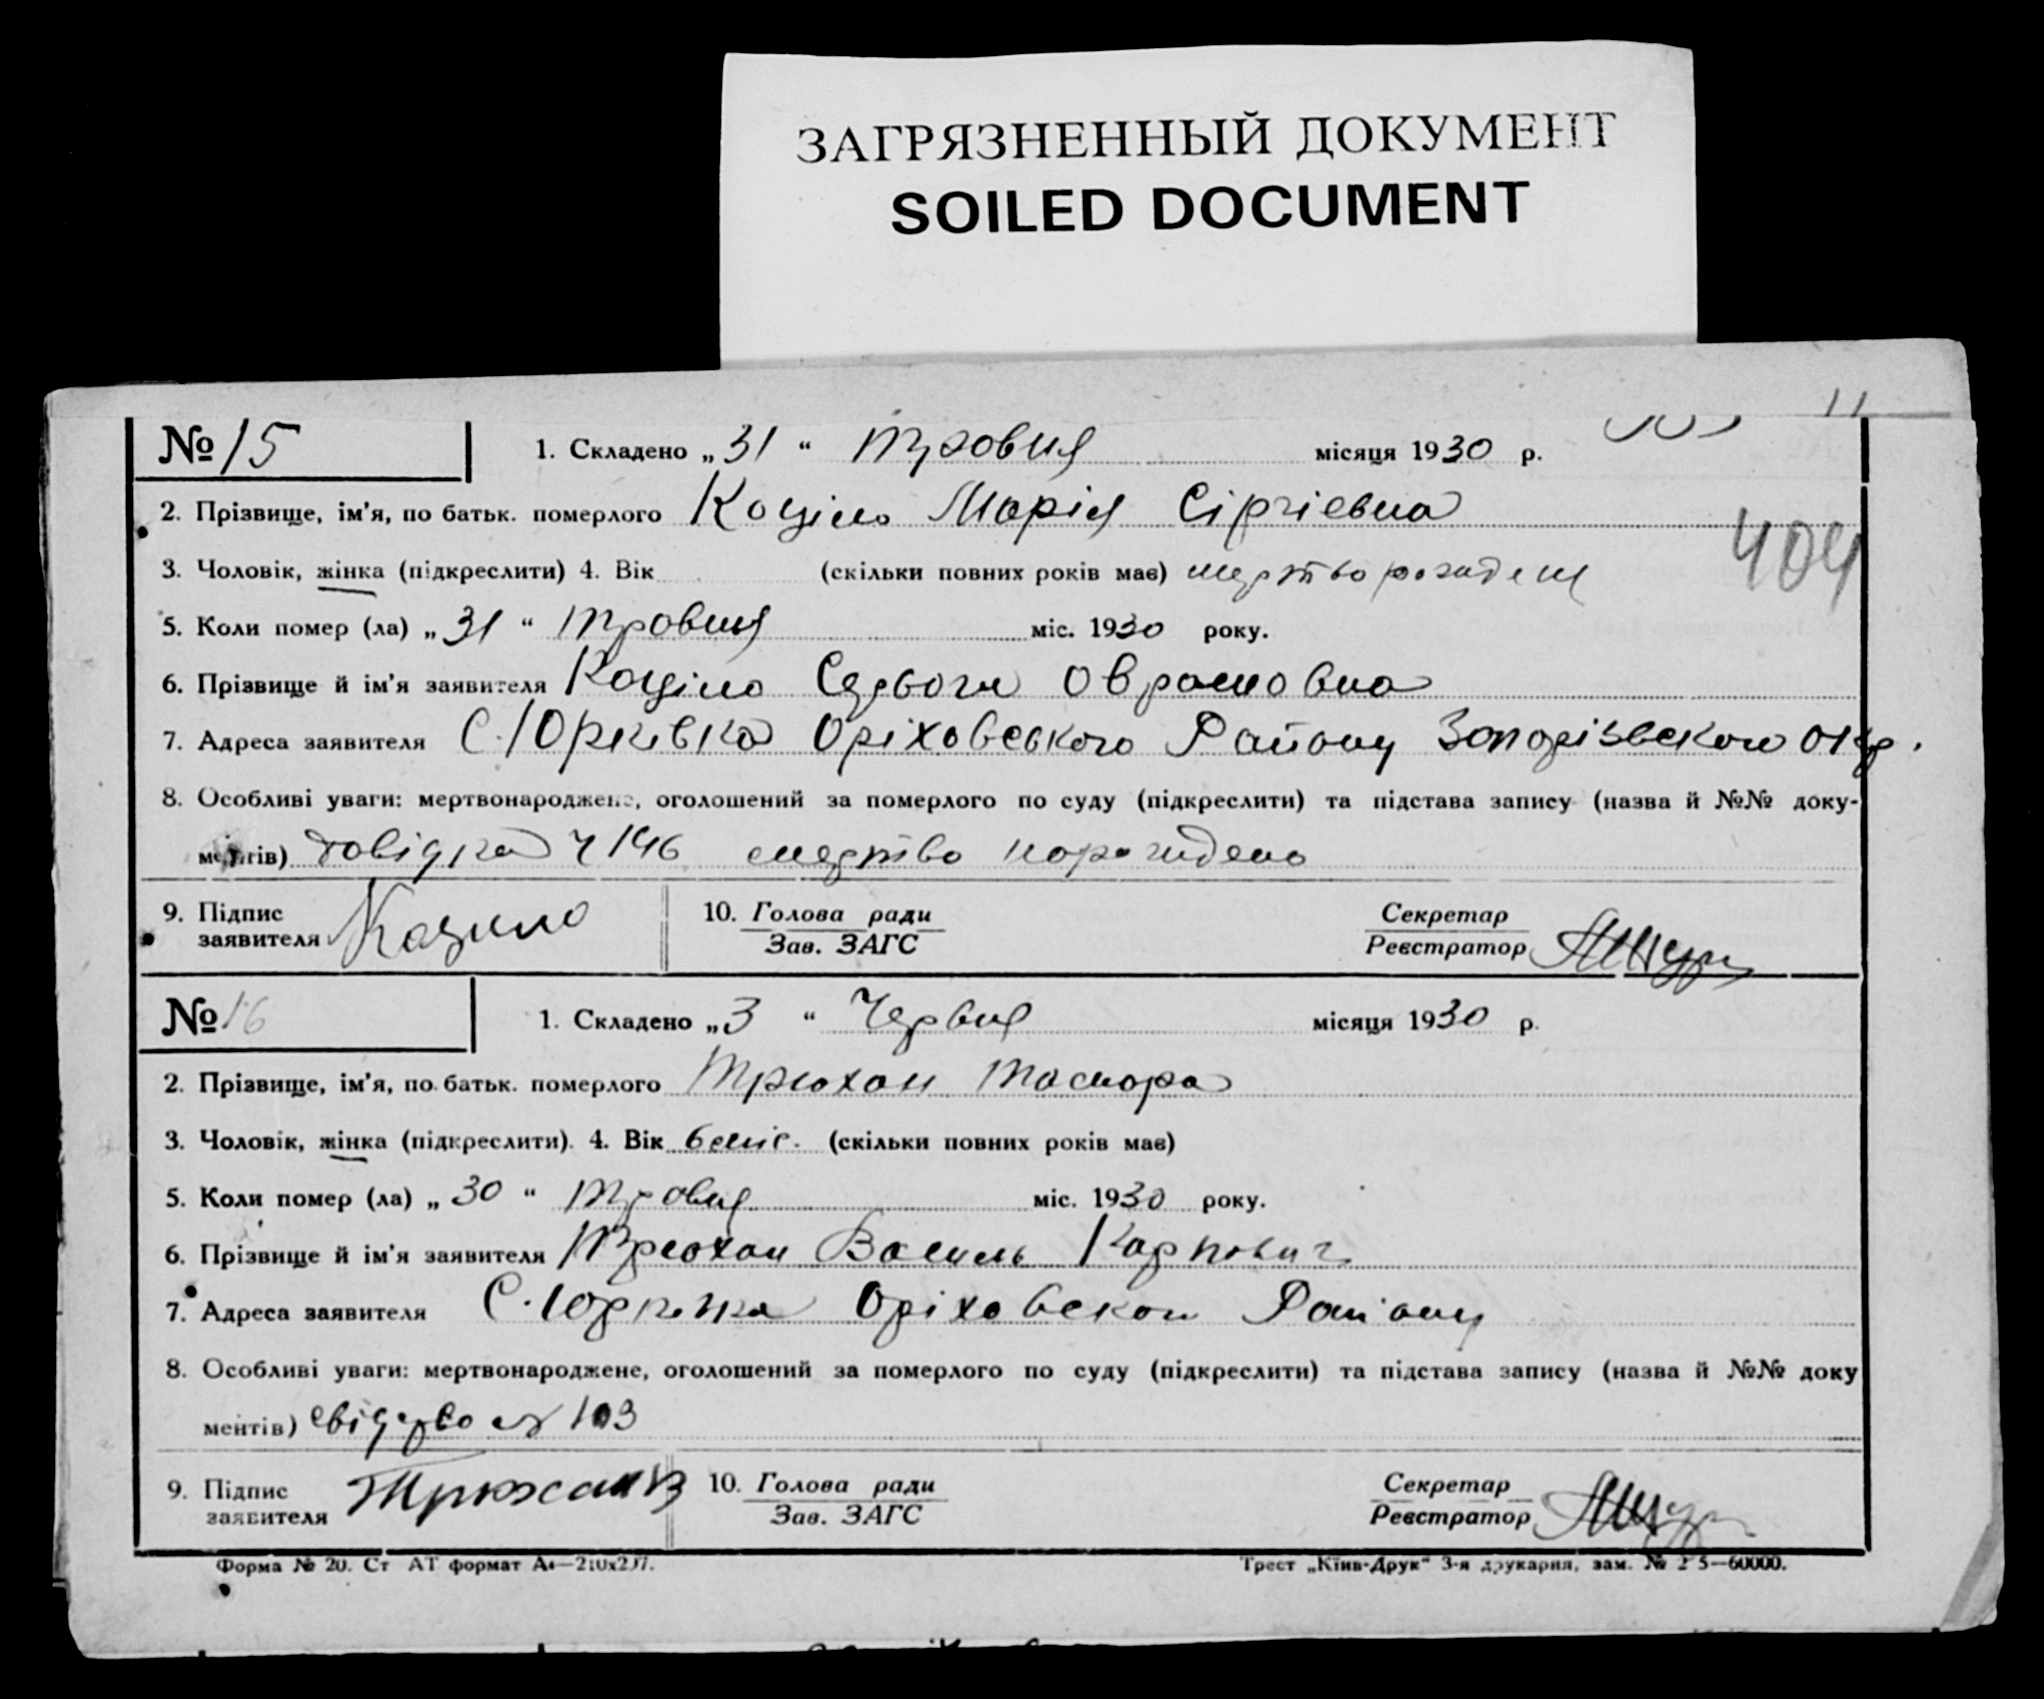 ЗАГРЯЗНЕННЫЙ ДОКУМЕНТ
SOILED DOCUMENT
11
№ 15 1. Складено „31“ Травня місяця 1930 р.
2. Прізвище, ім'я, по батьк. померлого Коціло Марія Сіргіевна
404
3. Чоловік, жінка (підкреслити) 4. Вік (скільки повних років має)
5. Коли помер (ла) „31“ Травня міс. 1930 року.
6. Прізвище й ім'я заявителя Коціло
7. Адреса заявителя С. Юрківка Оріховського Району Запорізського окр.
8. Особливі уваги: мертвонароджене, оголошений за померлого по суду (підкреслити) та підстава запису (назва й №№ доку-
ментів) довідка ч 146
9. Підпис заявителя Коцило 10. Голова ради Зав. ЗАГС Секретар Реєстратор
№ 16 1. Складено „3“ Червня місяця 1930 р.
2. Прізвище, ім'я, по батьк. померлого Трюхан
3. Чоловік, жінка (підкреслити). 4. Вік 6 міс. (скільки повних років має)
5. Коли помер (ла) „30“ Травня міс. 1930 року.
6. Прізвище й ім'я заявителя Трюхан Василь Карпович
7. Адреса заявителя С. Юркивка Оріховского Району
8. Особливі уваги: мертвонароджене, оголошений за померлого по суду (підкреслити) та підстава запису (назва й №№ доку
ментів) 103
9. Підпис заявителя Трюхан В 10. Голова ради Зав. ЗАГС Секретар Реєстратор
Форма № 20. Ст АТ формат А4—210х297. Трест „Київ-Друк“ 3-я друкарня, зам. № 60000.